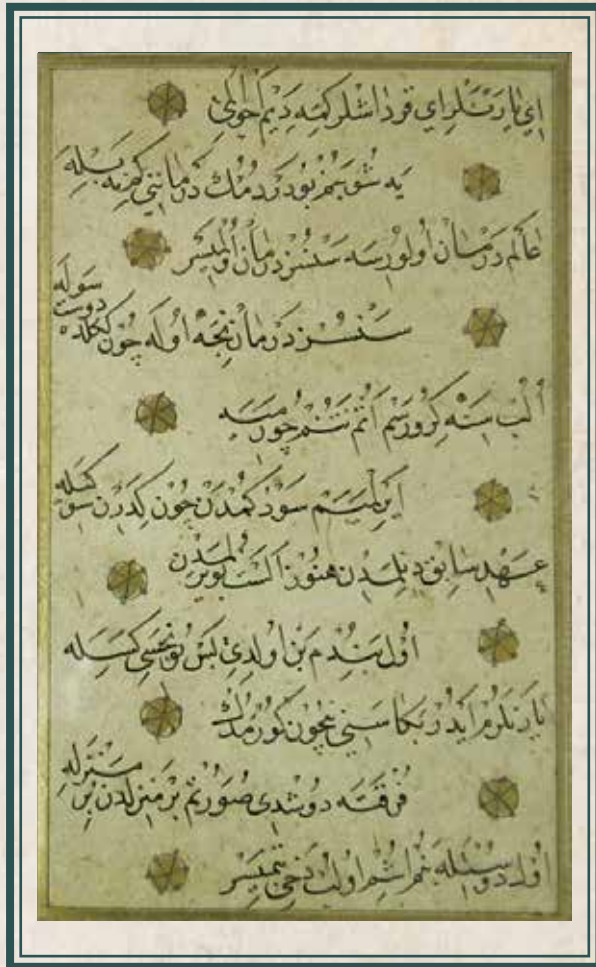 ای یارنلر ای قرداشلر کمه دیم احوالمی
یه شو بنم بو دردمك درمانی کم نه بیله
عالم درمان اولورسه سنسز درمان اولمیسر
سنسز درمان نجه اوله چون ککلده دوست سوله
سنه کرورسم اتم تنم چوریسه
ایرلمیم چون کدرن
عهد سابق هنوز الست بویرلمدن
اول بندم بن اولدی بس کسله
یارنلرم ایدر بکا سنی نچون کورمدك
فرقته دوشدی صورتم بر منزلدن بر منزله
اول دوستله بنم اشم اولب دخی